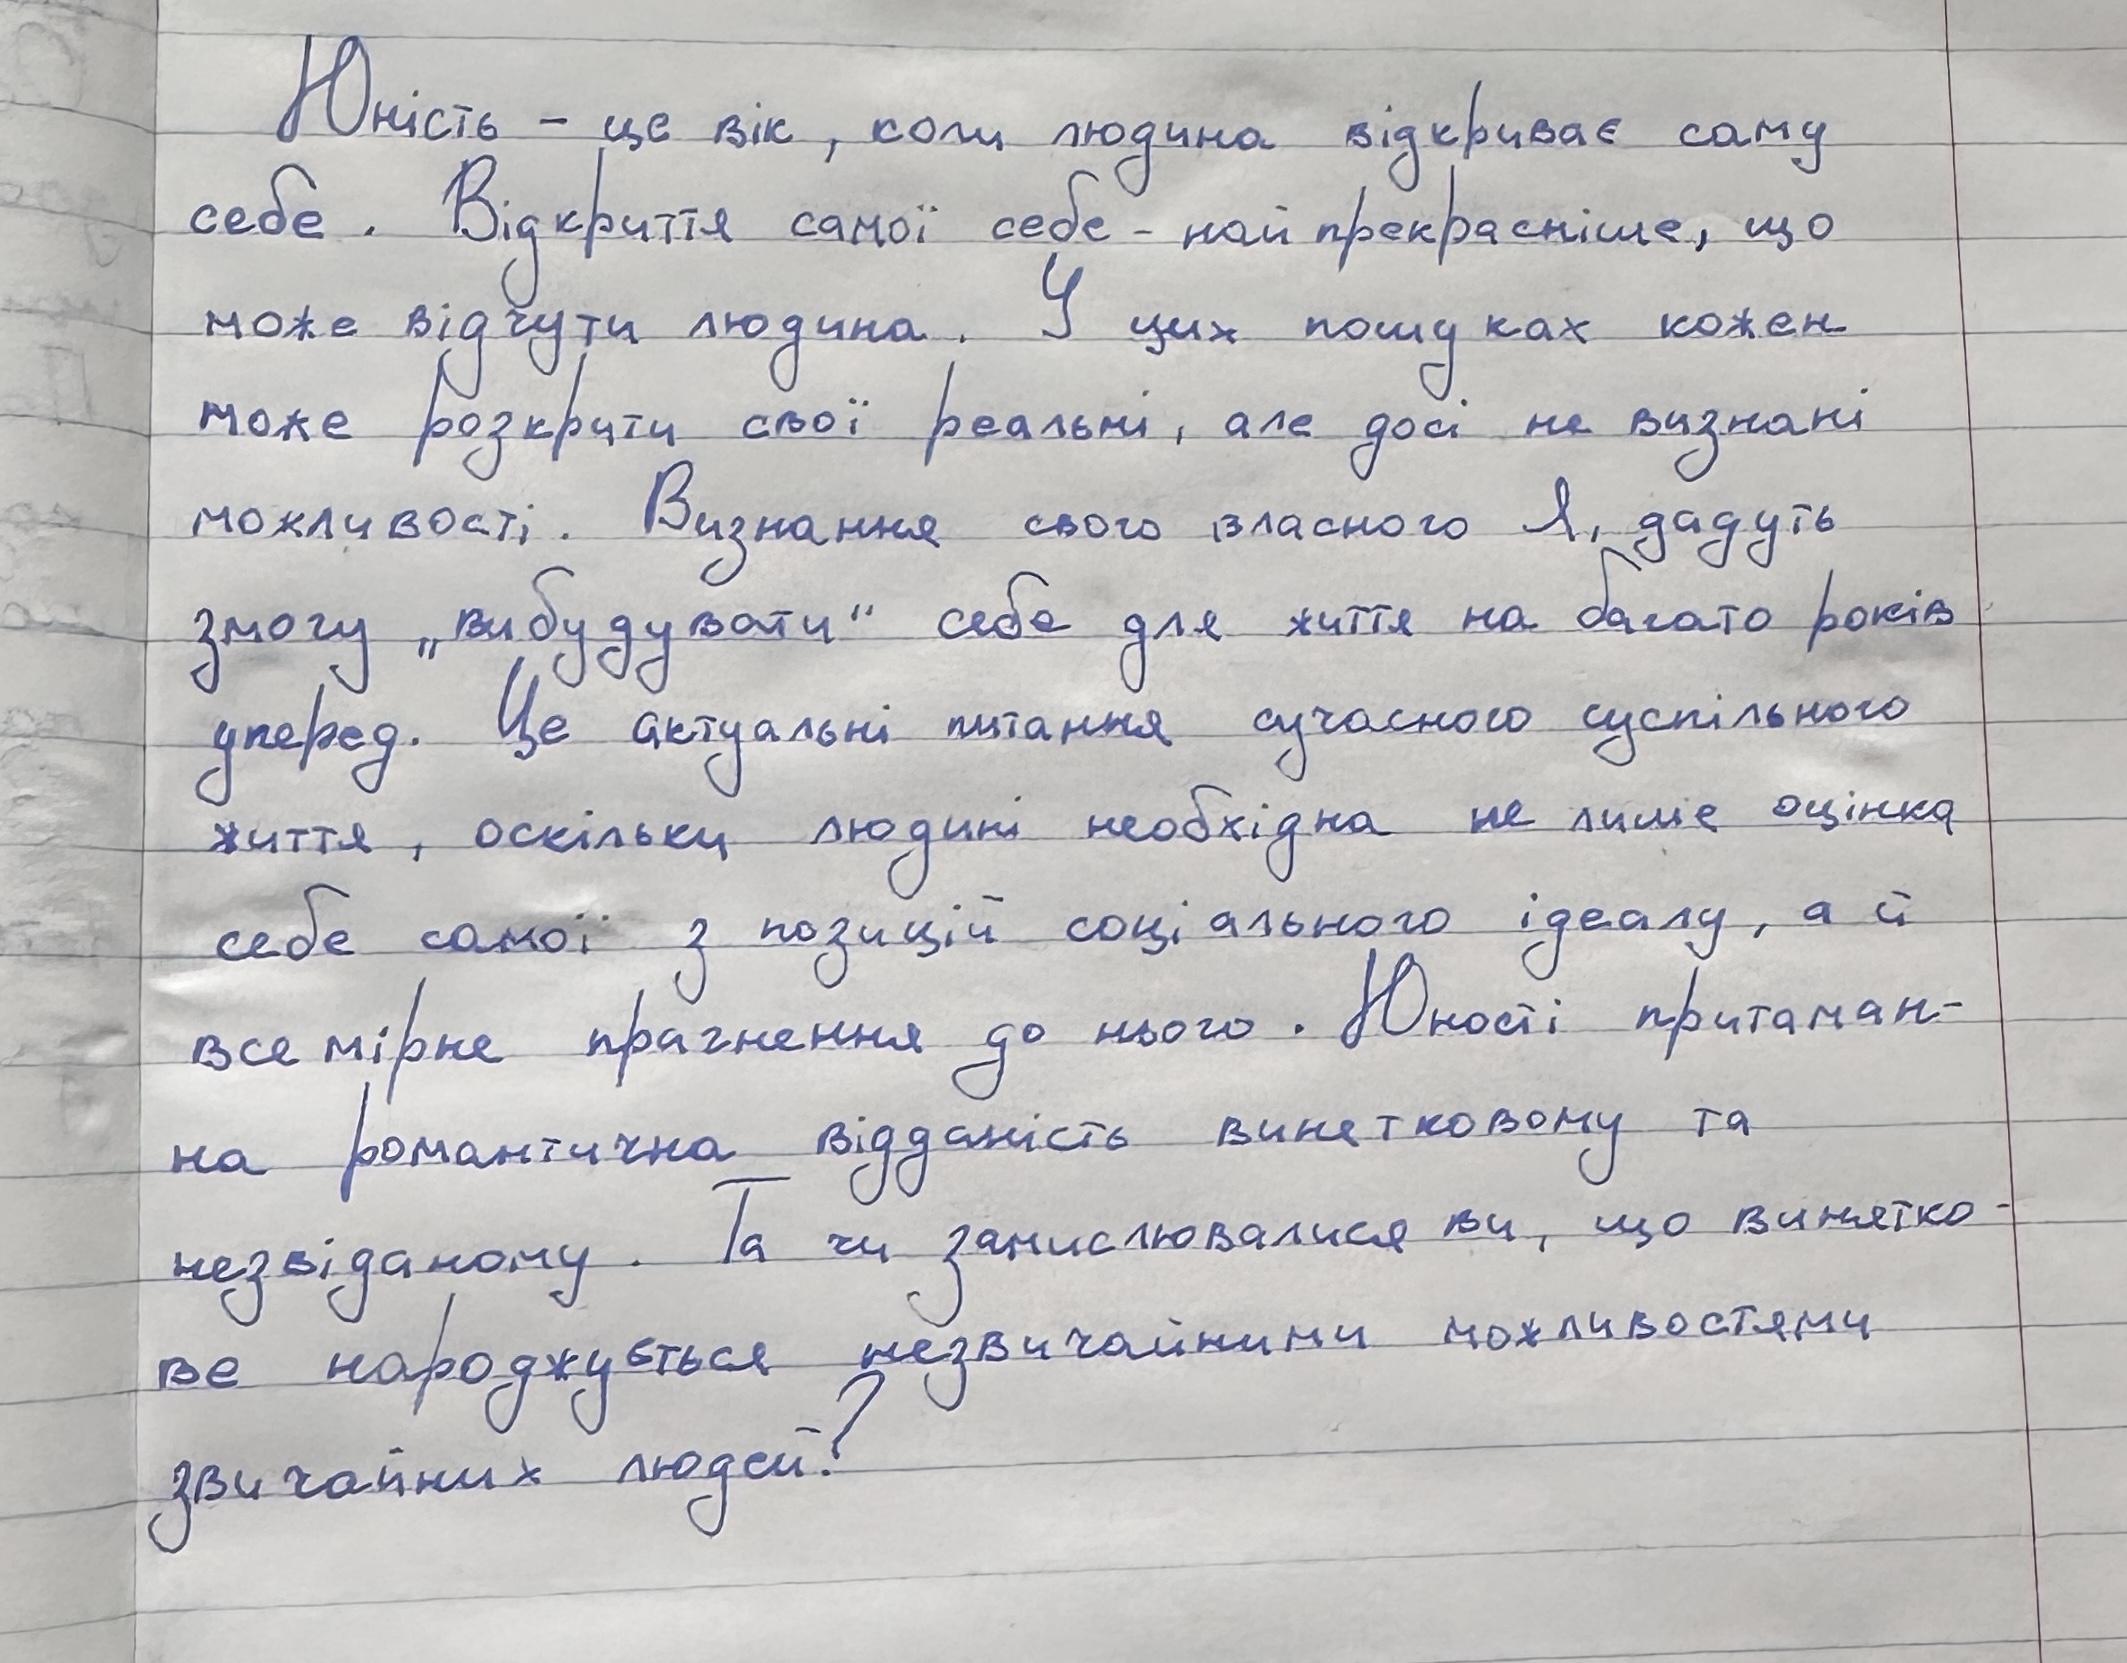 Юність - це вік, коли людина відкриває саму
себе. Відкриття самої себе - найпрекрасніше, що
може відчути людина. У цих пошуках кожен
може розкрити свої реальні, але досі не визнані
можливості. Визнання свого власного Я, дадуть
змогу „вибудувати“ себе для життя на багато років
уперед. Це актуальні питання сучасного суспільного
життя, оскільки людині необхідна не лише оцінка
себе самої з позицій соціального ідеалу, а й
всемірне прагнення до нього. Юності притаман-
на романтична відданість винятковому та
незвіданому. Та чи замислювалися ви, що винятко-
ве народжується незвичайними можливостями
звичайних людей?